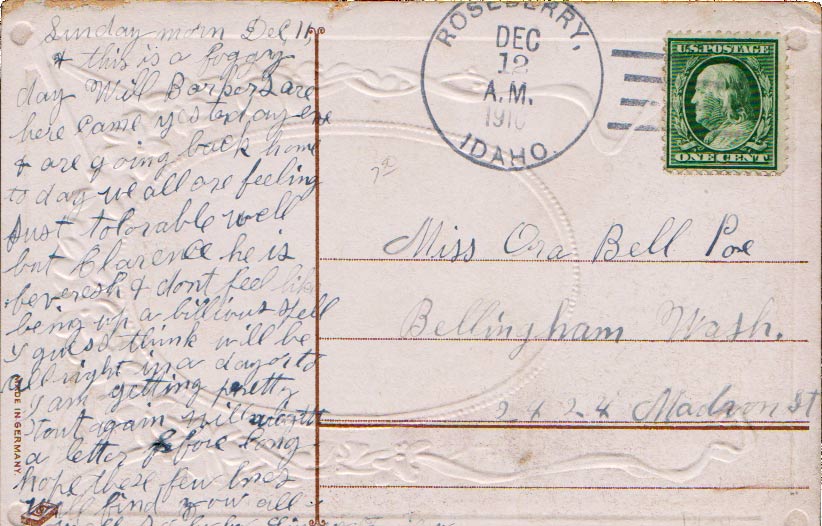 Sunday morn Dec 11,
& this is a foggy
day Will Barpers are
here came yesterday eve
& are going back home
to day we all are feeling
Just tolorable well
but Clarence he is
feveresh & dont feel like
being up a billious spell
I guess think will be
all right in a day or to
I am getting pretty
stout again will write
a letter before long
hope these few lines
will find you all
well
MADE IN GERMANY.
ROSEBERRY,
DEC
12
A.M.
1910
IDAHO.
U.S. POSTAGE
ONE CENT
Miss Ora Bell Poe
Bellingham Wash.
2424 Madron St